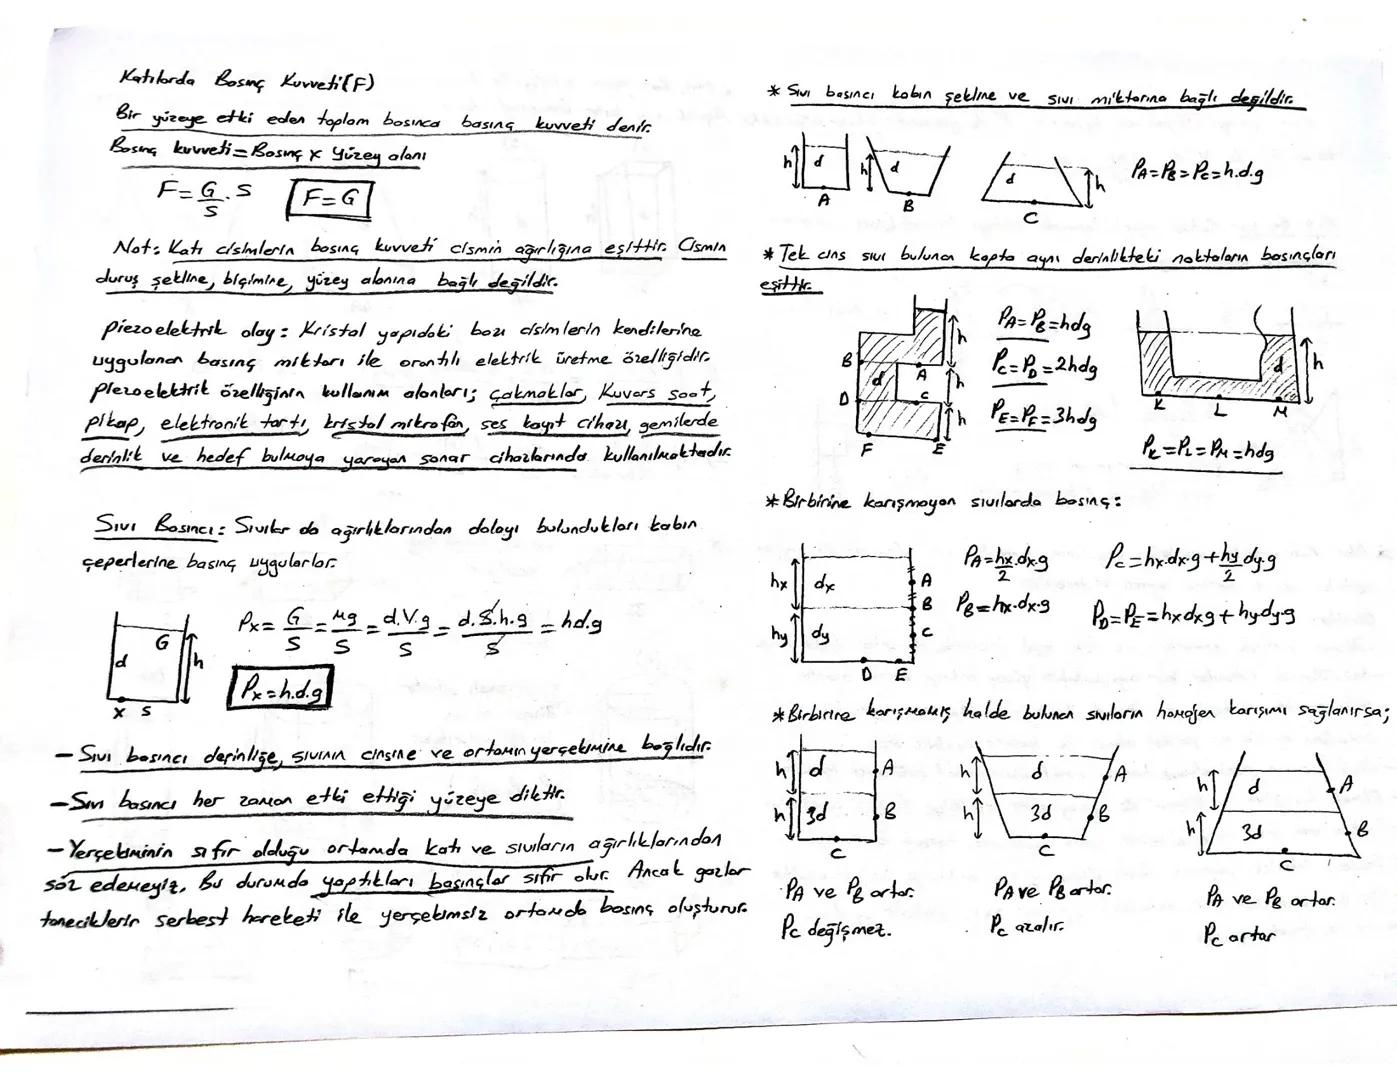 Katılarda Basınç Kuvveti (F)
Bir yüzeye etki eden toplam basınca basınç kuvveti denir.
Basınç kuvveti = Basınç x Yüzey alanı
F = G/S . S   F = G
Not: Katı cisimlerin basınç kuvveti cismin ağırlığına eşittir. Cismin
duruş şekline, biçimine, yüzey alanına bağlı değildir.
Piezoelektrik olay: Kristal yapıdaki bazı cisimlerin kendilerine
uygulanan basınç miktarı ile orantılı elektrik üretme özelliğidir.
Piezoelektrik özelliğinin kullanım alanları; çakmaklar, Kuvars saat,
pikap, elektronik tartı, kristal mikrofon, ses kayıt cihazı, gemilerde
derinlik ve hedef bulmaya yarayan sonar cihazlarında kullanılmaktadır.
Sıvı Basıncı: Sıvılar da ağırlıklarından dolayı bulundukları kabın
çeperlerine basınç uygularlar.
G
d
h
x S
Px = G/S = mg/S = d.V.g/S = d.S.h.g/S = hd.g
Px = h.d.g
- Sıvı basıncı derinliğe, sıvının cinsine ve ortamın yerçekimine bağlıdır.
- Sıvı basıncı her zaman etki ettiği yüzeye diktir.
- Yerçekiminin sıfır olduğu ortamda katı ve sıvıların ağırlıklarından
söz edemeyiz. Bu durumda yaptıkları basınçlar sıfır olur. Ancak gazlar
taneciklerin serbest hareketi ile yerçekimsiz ortamda basınç oluşturur.
* Sıvı basıncı kabın şekline ve sıvı miktarına bağlı değildir.
h d h d d h
A B C
PA = PB = PC = h.d.g
* Tek cins sıvı bulunan kapta aynı derinlikteki noktaların basınçları
eşittir.
h
B A h
d
D C h
F E
PA = PB = hdg
PC = PD = 2hdg
PE = PF = 3hdg
d h
K L M
PK = PL = PM = hdg
* Birbirine karışmayan sıvılarda basınç:
hx dx A
B
hy dy C
D E
PA = hx/2.dx.g   PC = hx.dx.g + hy/2 dy.g
PB = hx.dx.g   PD = PE = hxdxg + hydyg
* Birbirine karışmamış halde bulunan sıvıların homojen karışımı sağlanırsa;
h d A h d A h d A
h 3d B h 3d B h 3d B
C C C
PA ve PB artar. PA ve PB artar. PA ve PB artar.
PC değişmez. PC azalır. PC artar